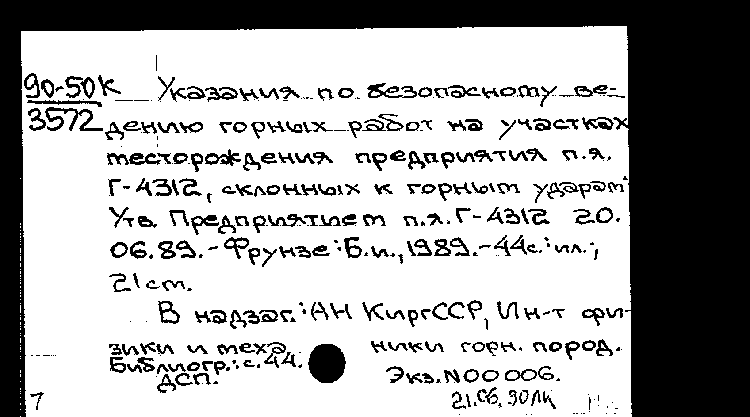 90-50К
3572
Указания по безопасному ве-
дению горных работ на участках
месторождения предприятия п.я.
Г-4312, склонных к горным ударам
Утв. Предприятием п.я. Г-4312 20.
06.89.-Фрунзе: Б.и., 1989.-44с.: ил.;
21см.
В надзаг.: АН КиргССР, Ин-т фи-
зики и меха ники горн. пород.
Библиогр.: с.44.
ДСП. Экз.N00006.
7 21.Сб.